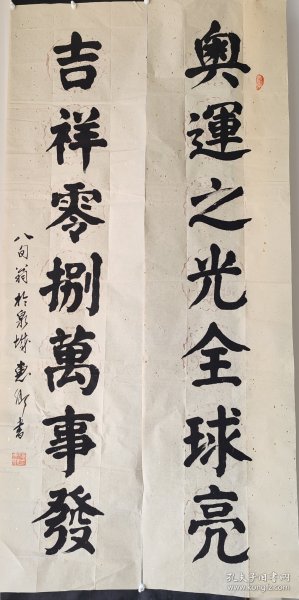 奥運之光全球亮
吉祥零捌萬事發
八旬翁於泉城惠卿書
孔夫子旧书网
kongfz.com